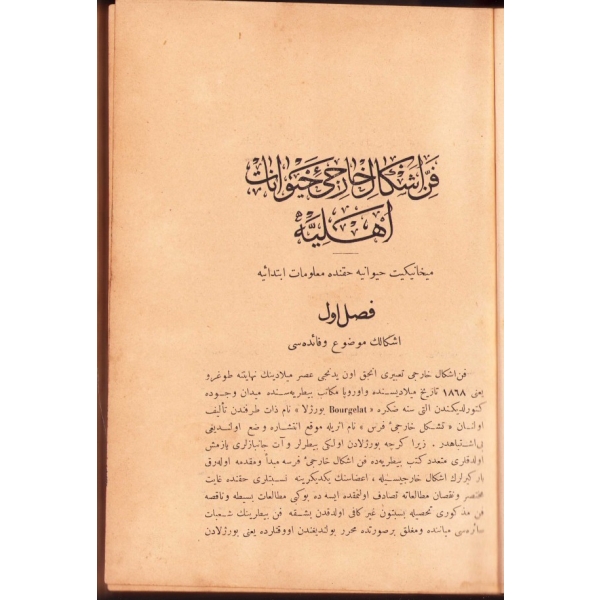 فن اشكال خارجئ حيوانات
اهليه
ميخانيكيت حيوانيه حقنده معلومات ابتدائيه
فصل اول
اشكالك موضوع و فائده‌سى
فن اشكال خارجى تعبيرى انجق اون يدنجى عصر ميلادينك نهايتنه طوغرو
يعنى ١٨٦٨ تاريخ ميلاديسنده و اوروپا مكاتب بيطريه‌سنده ميدان وجوده
كتورلديكندن التى سنه صكره « Bourgelat بورژلا » نام ذات طرفندن تأليف
اولنان « تشكل خارجئ فرس » نام اثريله موقع انتشاره وضع اولنديغى
بى‌اشتباهدر . زيرا كرچه بورژلادن اولكى بيطرلر و آت جانبازلرى يازمش
اولدقلرى متعدد كتب بيطريه‌ده فن اشكال خارجئ فرسه مبدأ و مقدمه اوله‌رق
باركيرلرك اشكال خارجيه‌سيله ، اعضاسنك يكديكرينه نسبتلرى حقنده غايت
مختصر و نقصان مطالعاته تصادف اولنمقده ايسه ده بوكبى مطالعات بسيطه و ناقصه
فن مذكورى تحصيله بسبتون غير كافى اولدقدن بشقه فن بيطرينك شعبات
سائره‌سى مياننده و مغلق برصورتده محرر بولنديغندن اووقتلرده يعنى بورژلادن